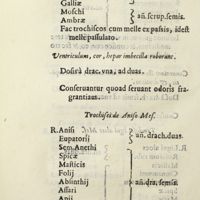 Galliæ
Moschi
Ambræ
añ. scrup. semis.
Fac trochiscos cum melle ex passis, idest
melle passulato.
Ventriculum, cor, hepar imbecilla roborant.
Dosis à drac. vna, ad duas.
Conseruentur quoad seruant odoris fra-
grantiam.
Trochisci de Aniso Mes.
R. Anisi
Eupatorij
añ. drach. duas.
Sem. Anethi
Spicæ
Masticis
Folij
Absinthij
añ. dra. semis.
Assari
Apij